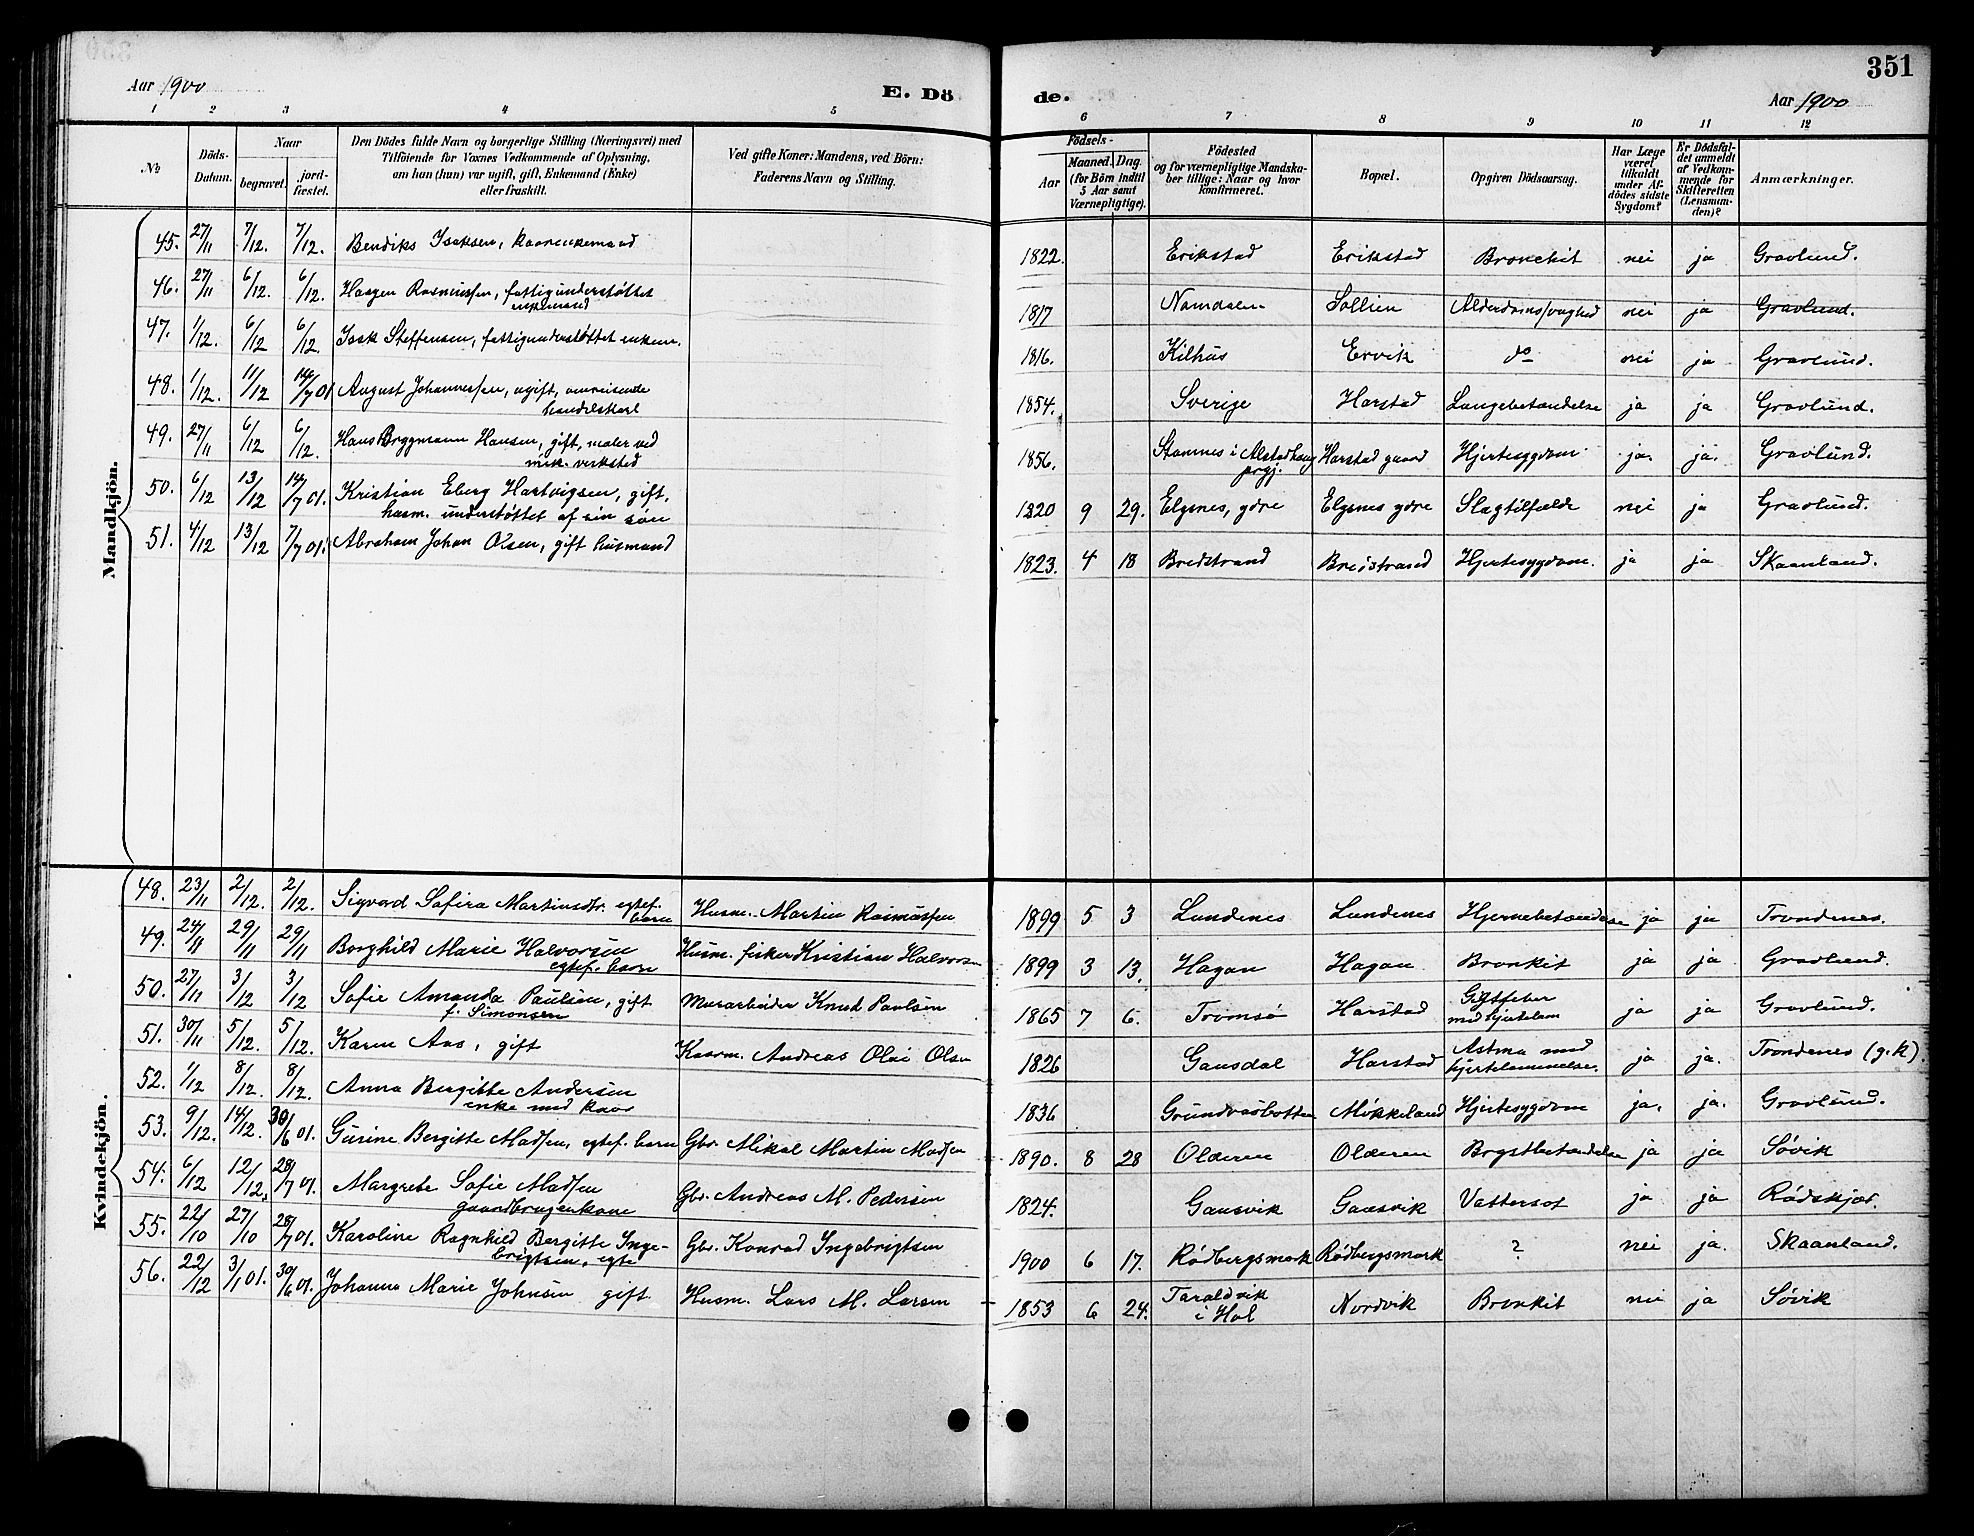 Aar 1900
E. Dö
de.
351
Aar 1900
1 2 3 4 5 6 7 8 9 10 11 12
No
Döds-Datum.
Naar
begravet.
jord-fæstet.
Den Dödes fulde Navn og borgerlige Stilling (Næringsvei) med
Tilföiende for Voxnes Vedkommende af Oplysning,
om han (hun) var ugift, gift, Enkemand (Enke)
eller fraskilt.
Ved gifte Koner: Mandens, ved Börn:
Faderens Navn og Stilling.
Födsels-
Aar
Maaned. Dag.
(for Börn indtil
5 Aar samt
Værnepligtige).
Födested
og for værnepligtige Mandska-
ber tillige: Naar og hvor
konfirmeret.
Bopæl.
Opgiven Dödsaarsag.
Har Læge
været
tilkaldt
under Af-
dödes sidste
Sygdom?
Er Dödsfal-
det anmeldt
af Vedkom-
mende for
Skifteretten
(Lensman-
den)?
Anmærkninger.
Mandkjön.
45. 27/11 7/12. 7/12. Bendiks Isaksen, kaarenkemand 1822. Erikstad Erikstad Bronchit nei ja Gravlund.
46. 27/11 6/12. 6/12. Haagen Rasmussen, fattigunderstøttet
enkemand 1817 Namdalen Sollien Alderdomssvaghed nei ja Gravlund.
47. 1/12. 6/12 6/12. Isak Steffensen, fattigunderstøttet enkem. 1816. Kilhus Ervik do nei ja Gravlund.
48. 1/12. 11/12 14/7 01 August Johannessen, ugift, omreisende
handelskarl 1854. Sverige Harstad Lungebetændelse ja ja Gravlund.
49. 27/11 6/12 6/12. Hans Bryggmann Hansen, gift, maler ved
mek. verksted 1856. Stamnes i Alstadhaug
prgj. Harstad gaard Hjertesygdom ja. ja. Gravlund.
50. 6/12 13/12 14/7 01. Kristian Eberg Hartvigsen, gift,
husm. understøttet af sin søn 1820 9 29. Elgsnes, ydre Elgsnes ydre Slagtilfælde nei ja Gravlund.
51. 4/12 13/12 7/7 01. Abraham Johan Olsen, gift husmand 1823. 4 18 Bredstrand Breistrand Hjertesygdom. ja ja Skaanland.
Kvindekjön.
48. 23/11 2/12. 2/12. Sigvard Safira Martinsdtr. egtef.
barn Husm. Martin Rasmussen 1899 5 3 Lundenes Lundenes Hjernebetændelse ja ja Trondenes.
49. 24/11 29/11 29/11 Borghild Marie Halvorsen
egtef. barn Husm. fisker Kristian Halvorsen 1899 3 13. Hagan Hagan Bronkit ja ja Gravlund.
50. 27/11 3/12 3/12 Sofie Amanda Paulsen, gift
f. Simonsen Murarbeider Knut Paulsen 1865 7 6. Tromsø Harstad Giftfeber
med hjertelam ja ja Gravlund.
51. 30/11 5/12. 5/12. Karen Aas, gift Kaarm. Andreas Olai Olsen 1826 Gausdal Harstad Astma med
hjertelammelse. ja ja. Trondenes (g.k).
52. 1/12 8/12. 8/12. Anna Bergitte Andersen
enke med kaar 1836 Grundvasbotten Møkkeland Hjertesygdom ja. ja. Gravlund.
53. 9/12. 14/12. 30/6 01. Gurine Bergitte Madsen, egtef. barn Gbr. Mikal Martin Madsen 1890. 8 28 Olderen Olderen Brystbetændelse ja ja Søvik
54. 6/12 12/12, 28/7 01. Margrete Sofie Madsen
gaardbrugerkone Gbr. Andreas M. Pedersen 1824. Gausvik Gausvik Vattersot ja ja Rødskjær.
55. 22/10 27/10 28/7 01. Karoline Ragnhild Bergitte Inge-
brigtsen, egte Gbr. Konrad Ingebrigtsen 1900 6 17. Rødbergsmark Rødbergsmark ? nei ja. Skaanland.
56. 22/12 3/1 01. 30/6 01. Johanna Marie Johnsen gift Husm. Lars M. Larsen 1853 6 24. Taraldvik
i Hol Nordvik Bronkit nei ja Søvik